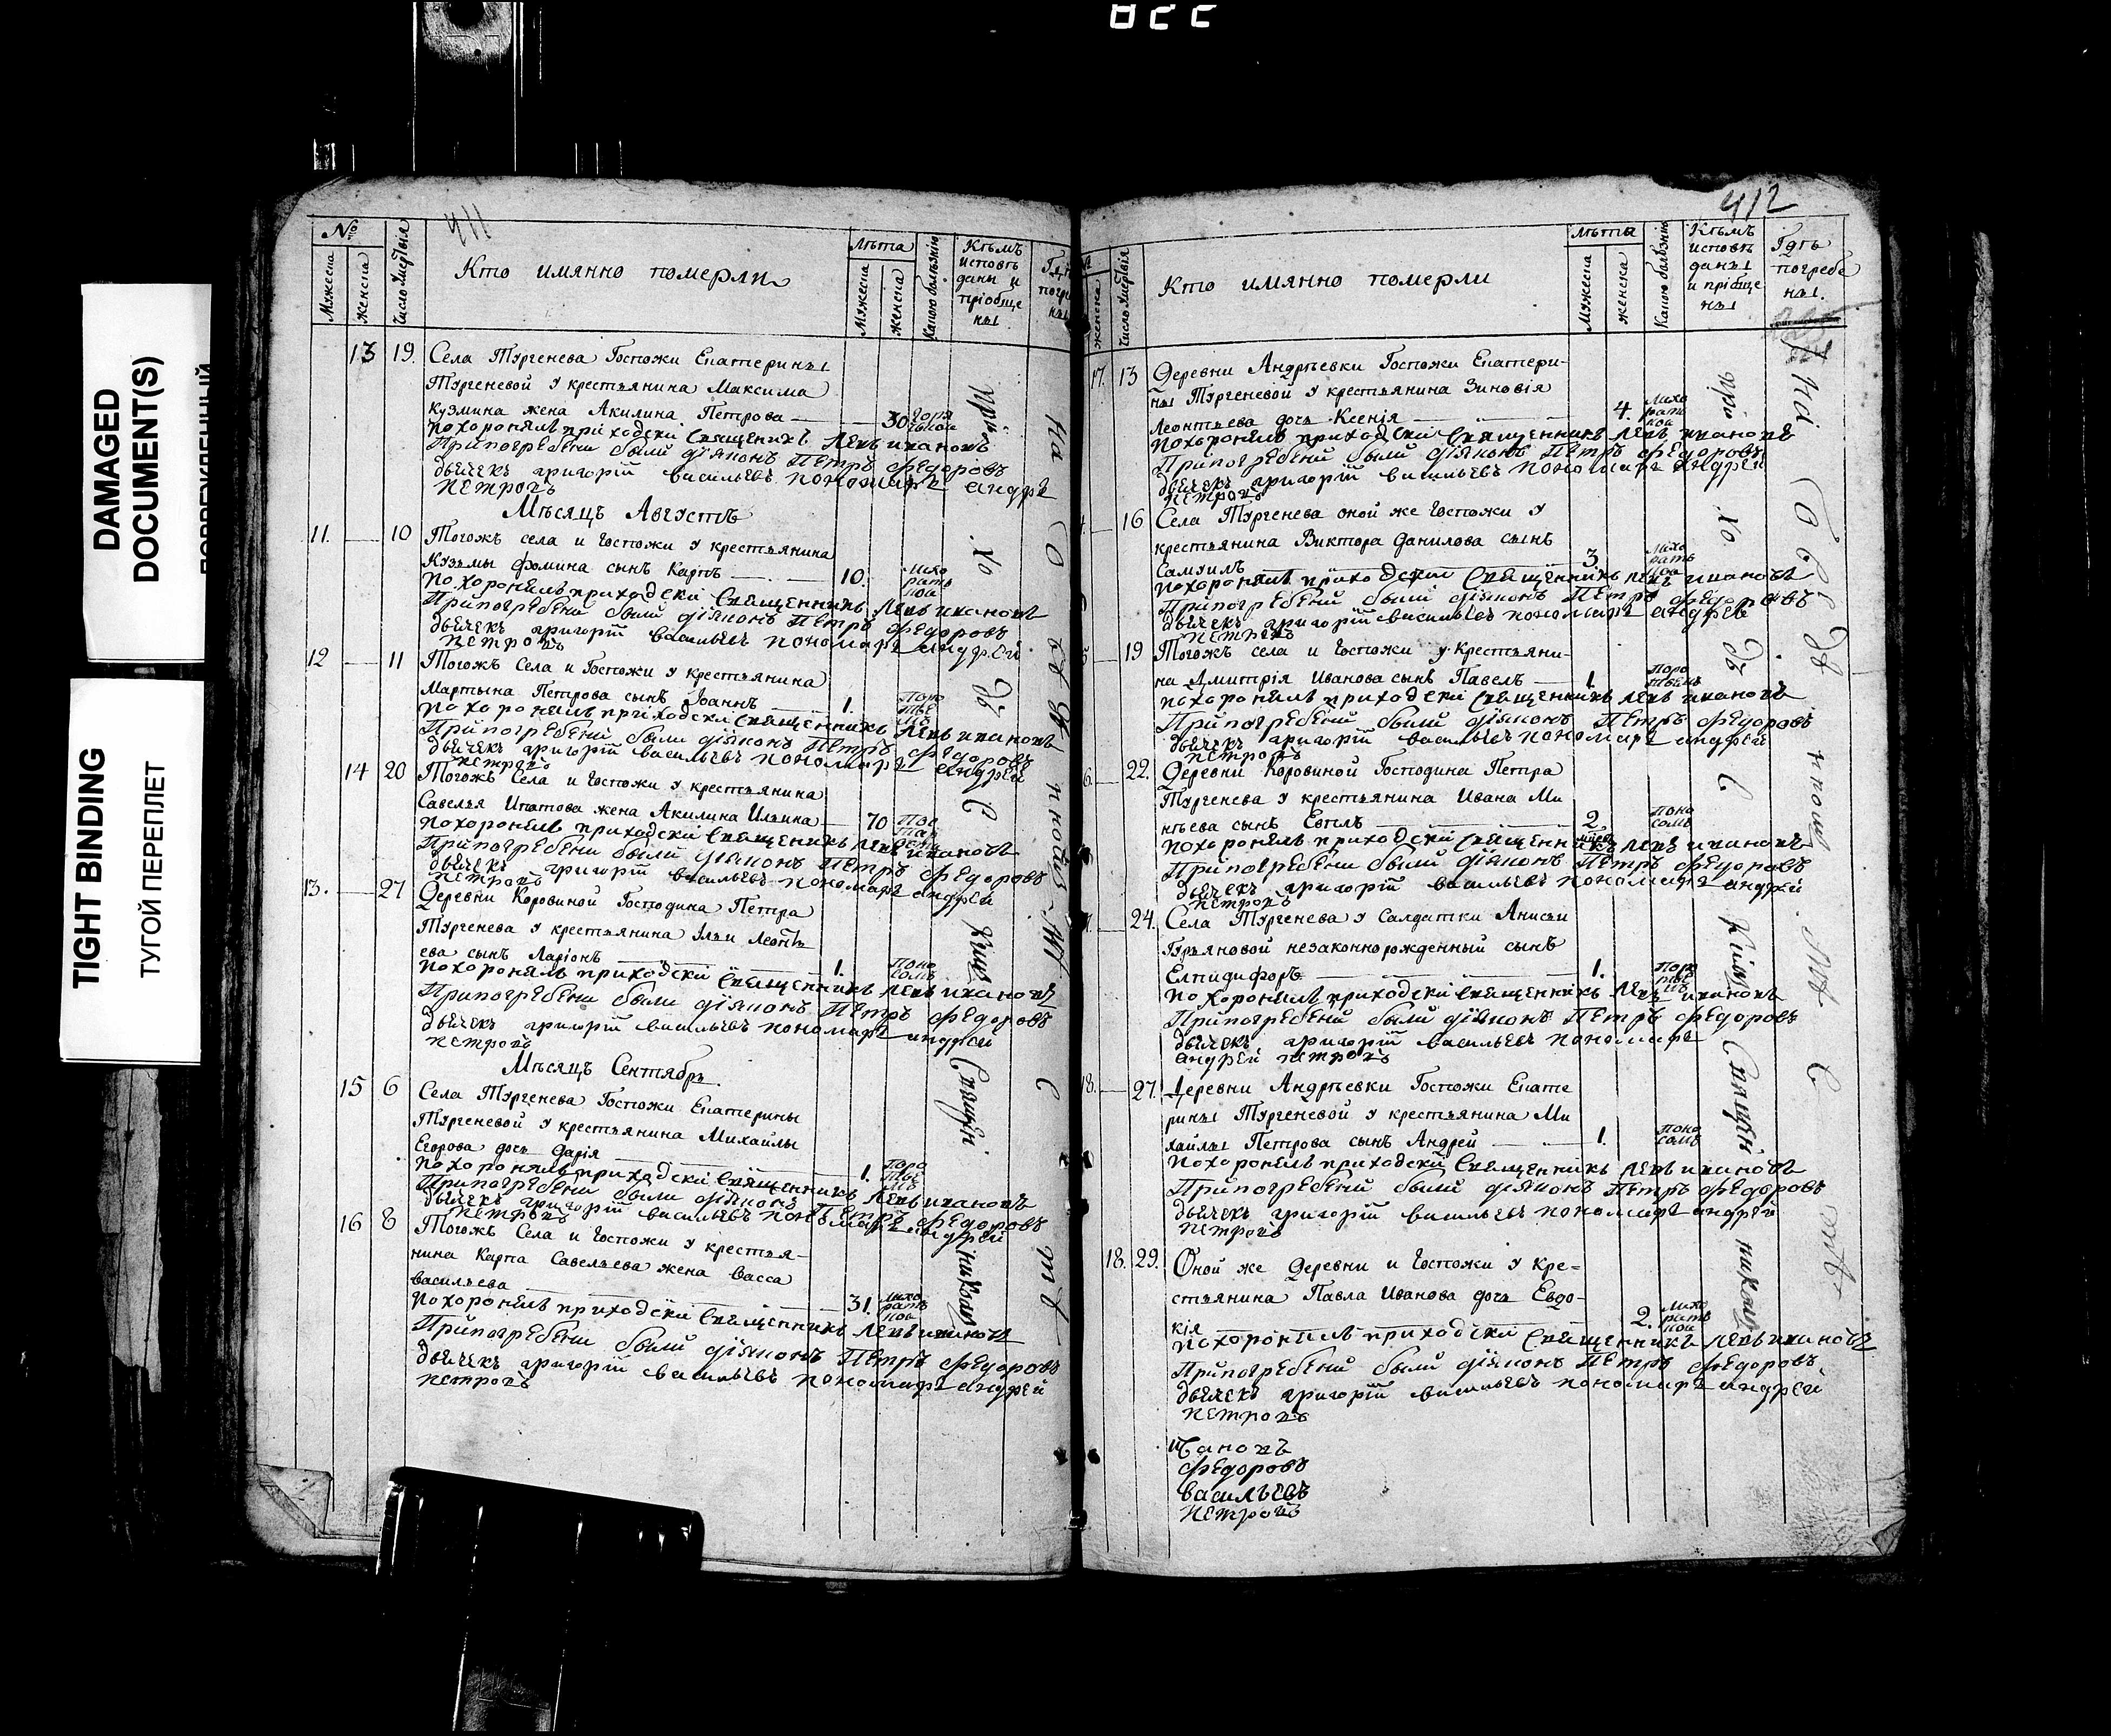 DAMAGED
DOCUMENT(S)
TIGHT BINDING
ТУГОЙ ПЕРЕПЛЕТ
411
№
Мужеска
Женска
Число умертвія
Кто имянно померли
Лѣта
Мужеска
Женска
Какою болѣзнію
Кѣмъ
исповѣ
даны и
пріобще
ны
13 19. Села Тургенева Госпожи Екатерины
Тургеневой у крестьянина Максима
Кузмина жена Акилина Петрова 30 горя
чкою
похоронялъ приходскй Священникъ Левъ ивановъ
При погребени были діяконъ Петръ Федоровъ
дьячекъ григорій васильевъ пономарь андре
петровъ
Мѣсяцъ Августъ
11. 10 Тогожъ села и Госпожи у крестьянина
Кузьмы Фомина сынъ Карпъ 10. лихо
рать
кой
похоронялъ приходскй Священникъ Левъ ивановъ
При погребени были діяконъ Петръ Федоровъ
дьячекъ григорій васильевъ пономарь андрей
петровъ
12 11 Тогожъ Села и Госпожи у крестьянина
Мартына Петрова сынъ Іоаннъ 1.
похоронялъ приходски Священникъ Левъ ивановъ
При погребени были діяконъ Петръ Федоровъ
дьячекъ григорій васильевъ пономарь андрей
петровъ
14 20 Тогожъ Села и Госпожи у крестьянина
Савелья Ипатова жена Акилина Ильина 70
похоронялъ приходскй Священникъ Левъ ивановъ
При погребени были діяконъ Петръ Федоровъ
дьячекъ григорій васильевъ пономарь андрей
петровъ
13. 27 Деревни Коровиной Господина Петра
Тургенева у крестьянина Ильи Леонть
ева сынъ Ларіонъ 1. поно
сомъ
похоронялъ приходскй Священникъ Левъ ивановъ
При погребени были діяконъ Петръ Федоровъ
дьячекъ григорій васильевъ пономарь андрей
петровъ
Мѣсяцъ Сентябрь
15 6 Села Тургенева Госпожи Екатерины
Тургеневой у крестьянина Михайлы
Егорова дочь Дарія 1.
похоронялъ приходскй Священникъ Левъ ивановъ
При погребени были діяконъ Петръ Федоровъ
дьячекъ григорій васильевъ пономарь андрей
петровъ
16 8 Тогожъ Села и Госпожи у крестья-
нина Карпа Савельева жена Васса
васильева 31. лихо
рать
кой
похоронялъ приходскй Священникъ Левъ ивановъ
При погребени были діяконъ Петръ Федоровъ
дьячекъ григорій васильевъ пономарь андрей
петровъ
412
женска
Число умертвія
Кто имянно померли
лѣта
Мужеска
женска
Какою болѣзнію
Кѣмъ
исповѣ
даны
и пріобще
ны
Гдѣ
погребе
ны.
17. 13 Деревни Андрѣевки Госпожи Екатери-
ны Тургеневой у крестьянина Зиновія
Леонтьева дочь Ксенія 4. лихо
рать
кой
похоронялъ приходскй Священникъ Левъ ивановъ
При погребени были діяконъ Петръ Федоровъ
дьячекъ григорій васильевъ пономарь андрей
петровъ
16 Села Тургенева оной же Госпожи у
крестьянина Виктора Данилова сынъ
Самуилъ 3. лихо
рать
кой
похоронялъ приходскй Священникъ Левъ ивановъ
При погребени были діяконъ Петръ Федоровъ
дьячекъ григорій васильевъ пономарь андрей
петровъ
19 Тогожъ села и Госпожи у крестьяни-
на Дмитрія Иванова сынъ Павелъ 1.
похоронялъ приходскй Священникъ Левъ ивановъ
При погребени были діяконъ Петръ Федоровъ
дьячекъ григорій васильевъ пономарь андрей
петровъ
22. Деревни Коровиной Господина Петра
Тургенева у крестьянина Ивана Ми
нѣева сынъ 2 поно
сомъ
похоронялъ приходскй Священникъ Левъ ивановъ
При погребени были діяконъ Петръ Федоровъ
дьячекъ григорій васильевъ пономарь андрей
петровъ
24. Села Тургенева у Салдатки Анисьи
незаконнорожденный сынъ
Елпидифоръ 1.
похоронялъ приходскй Священникъ Левъ ивановъ
При погребени были діяконъ Петръ Федоровъ
дьячекъ григорій васильевъ пономарь
андрей петровъ
18. 27. Деревни Андрѣевки Госпожи Екате
рины Тургеневой у крестьянина Ми
хайлы Петрова сынъ Андрей 1. поно
сомъ
похоронялъ приходскй Священникъ Левъ ивановъ
При погребени были діяконъ Петръ Федоровъ
дьячекъ григорій васильевъ пономарь андрей
петровъ
18. 29. Оной же Деревни и Госпожи у кре-
стьянина Павла Иванова дочь Евдо-
кія 2. лихо
рать
кой
похоронялъ приходскй Священникъ Левъ ивановъ
При погребени были діяконъ Петръ Федоровъ
дьячекъ григорій васильевъ пономарь андрей
петровъ
ивановъ
Федоровъ
васильевъ
петровъ